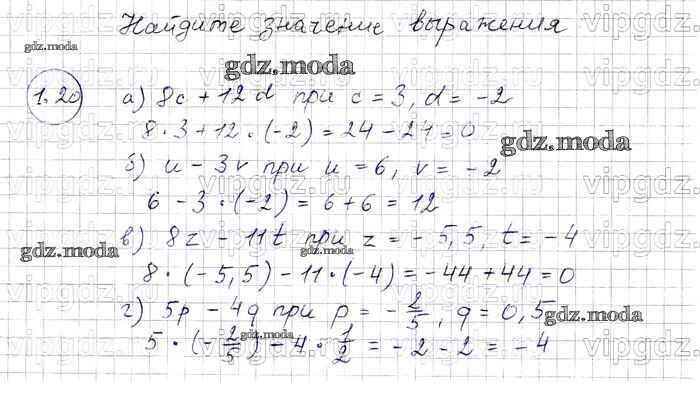 Найдите значение выражения
1.20 а) 8c + 12d при c = 3, d = -2
8 · 3 + 12 · (-2) = 24 - 24 = 0
б) u - 3v при u = 6, v = -2
6 - 3 · (-2) = 6 + 6 = 12
в) 8z - 11t при z = -5,5, t = -4
8 · (-5,5) - 11 · (-4) = -44 + 44 = 0
г) 5p - 4q при p = -2/5, q = 0,5
5 · (-2/5) - 4 · 1/2 = -2 - 2 = -4
gdz.moda
gdz.moda
gdz.moda
gdz.moda
gdz.moda
gdz.moda
vipgdz.ru